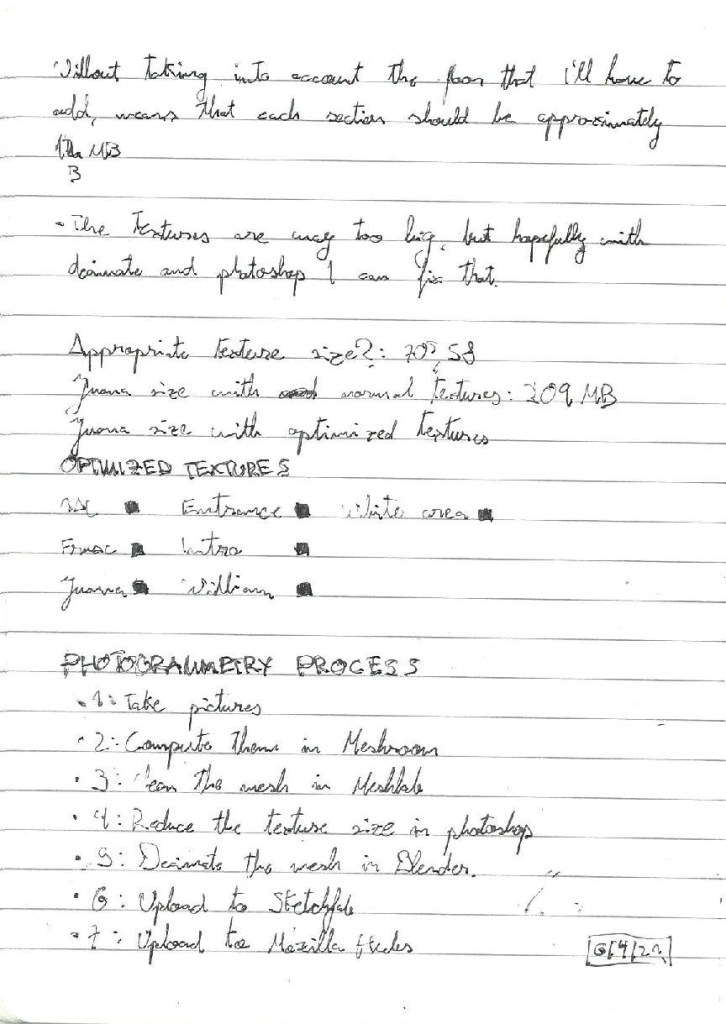 Without taking into account the floor that I'll have to
add, means that each section should be approximately
MB
- The textures are way too big, but hopefully with
decimate and photoshop I can fix that.
Appropriate texture size?:
Juana size with normal textures: 209 MB
Juana size with optimized textures
OPTIMIZED TEXTURES
Entrance ■ White area ■
■ Intro ■
Juana ■ William ■
PHOTOGRAMMETRY PROCESS
• 1: Take pictures
• 2: Compute them in Meshroom
• 3: Clean the mesh in Meshlab
• 4: Reduce the texture size in photoshop
• 5: Decimate the mesh in Blender.
• 6: Upload to Sketchfab
• 7: Upload to Mozilla Hubs